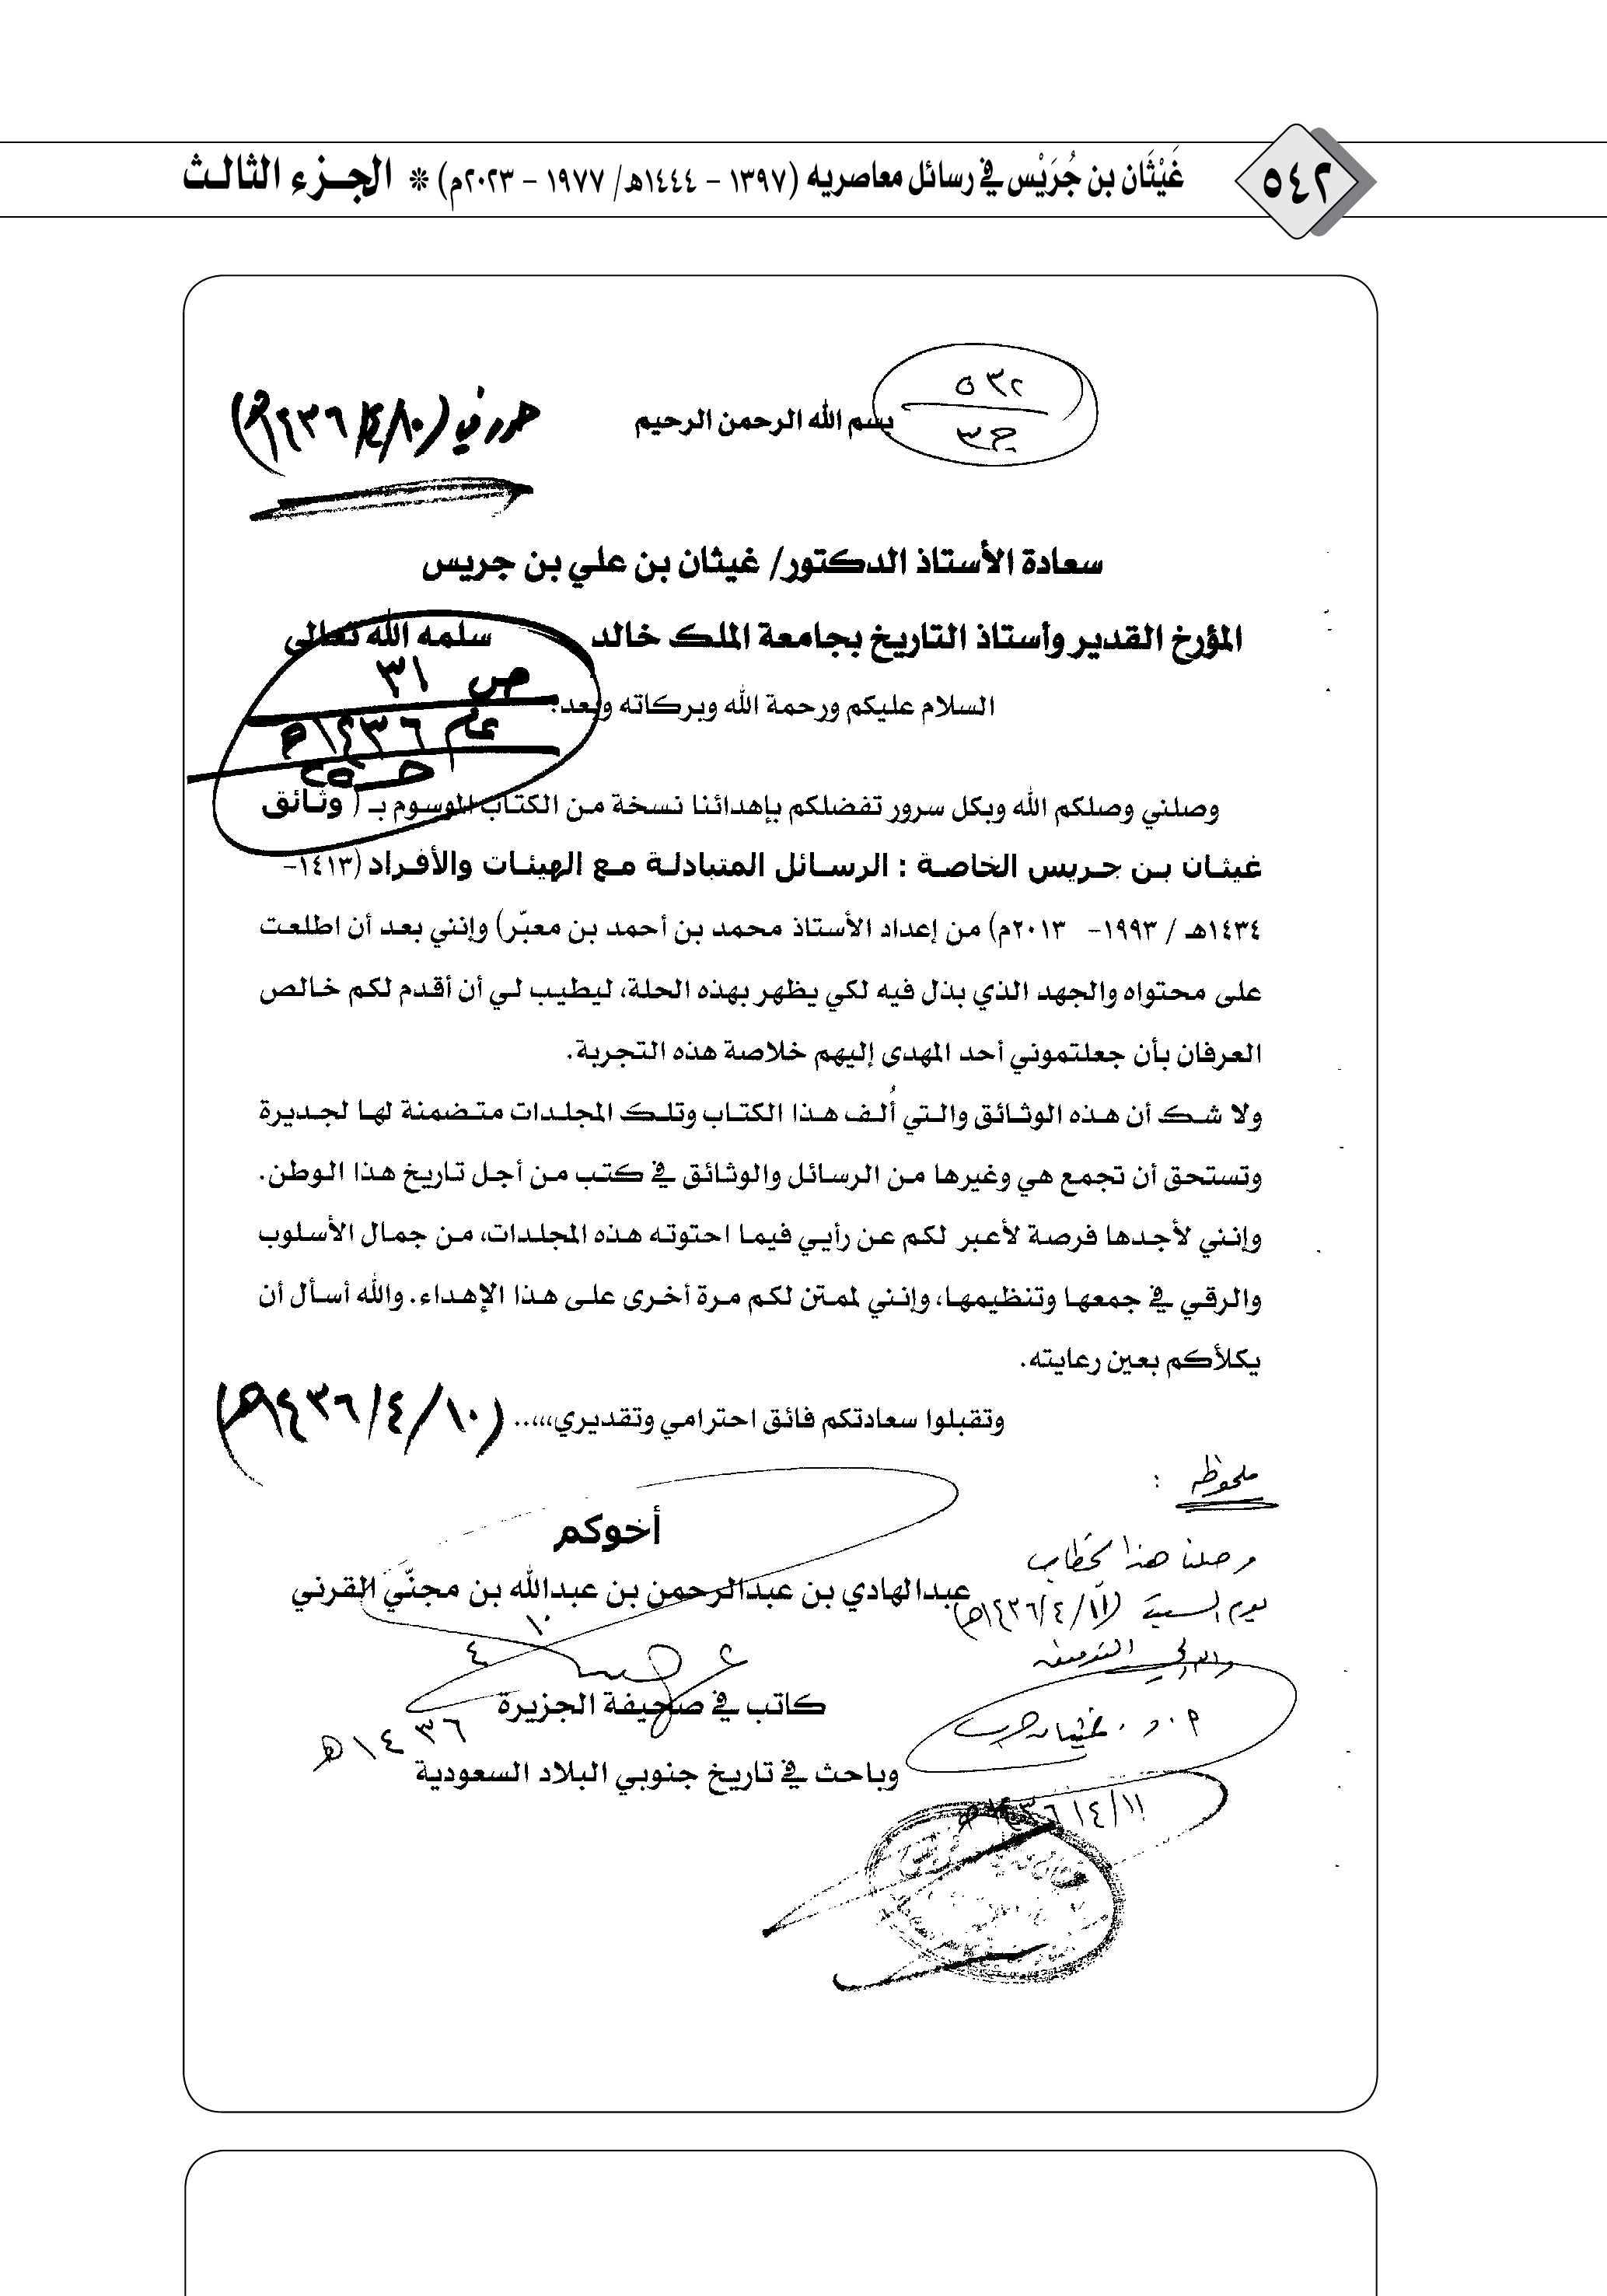 ٥٤٢
غَيْثَان بن جُرَيْس في رسائل معاصريه (١٣٩٧ - ١٤٤٤هـ/ ١٩٧٧ - ٢٠٢٣م) * الجزء الثالث
٥٣٢
ج٣
بسم الله الرحمن الرحيم
(١٤٣٦/٤/١٠هـ)
سعادة الأستاذ الدكتور/ غيثان بن علي بن جريس
المؤرخ القدير وأستاذ التاريخ بجامعة الملك خالد سلمه الله تعالى
ص ٣١
عام ١٤٣٦هـ
السلام عليكم ورحمة الله وبركاته وبعد:
وصلني وصلكم الله وبكل سرور تفضلكم بإهدائنا نسخة من الكتاب الموسوم بـ ( وثائق
غيثان بن جريس الخاصة : الرسائل المتبادلة مع الهيئات والأفراد (١٤١٣-
١٤٣٤هـ / ١٩٩٣- ٢٠١٣م) من إعداد الأستاذ محمد بن أحمد بن معبّر) وإنني بعد أن اطلعت
على محتواه والجهد الذي بذل فيه لكي يظهر بهذه الحلة، ليطيب لي أن أقدم لكم خالص
العرفان بأن جعلتموني أحد المهدى إليهم خلاصة هذه التجربة.
ولا شك أن هذه الوثائق والتي أُلف هذا الكتاب وتلك المجلدات متضمنة لها لجديرة
وتستحق أن تجمع هي وغيرها من الرسائل والوثائق في كتب من أجل تاريخ هذا الوطن.
وإنني لأجدها فرصة لأعبر لكم عن رأيي فيما احتوته هذه المجلدات، من جمال الأسلوب
والرقي في جمعها وتنظيمها، وإنني لممتن لكم مرة أخرى على هذا الإهداء. والله أسأل أن
يكلأكم بعين رعايته.
وتقبلوا سعادتكم فائق احترامي وتقديري،،،.. (١٤٣٦/٤/١٠هـ)
ملحوظة :
وصلنا هذا الخطاب
يوم السبت (١٤٣٦/٤/١١هـ)
والله ولي التوفيق
أ. د. غيثان جريس
١٤٣٦/٤/١١هـ
أخوكم
عبدالهادي بن عبدالرحمن بن عبدالله بن مجنّي القرني
١٠
٤
١٤٣٦هـ
كاتب في صحيفة الجزيرة
وباحث في تاريخ جنوبي البلاد السعودية